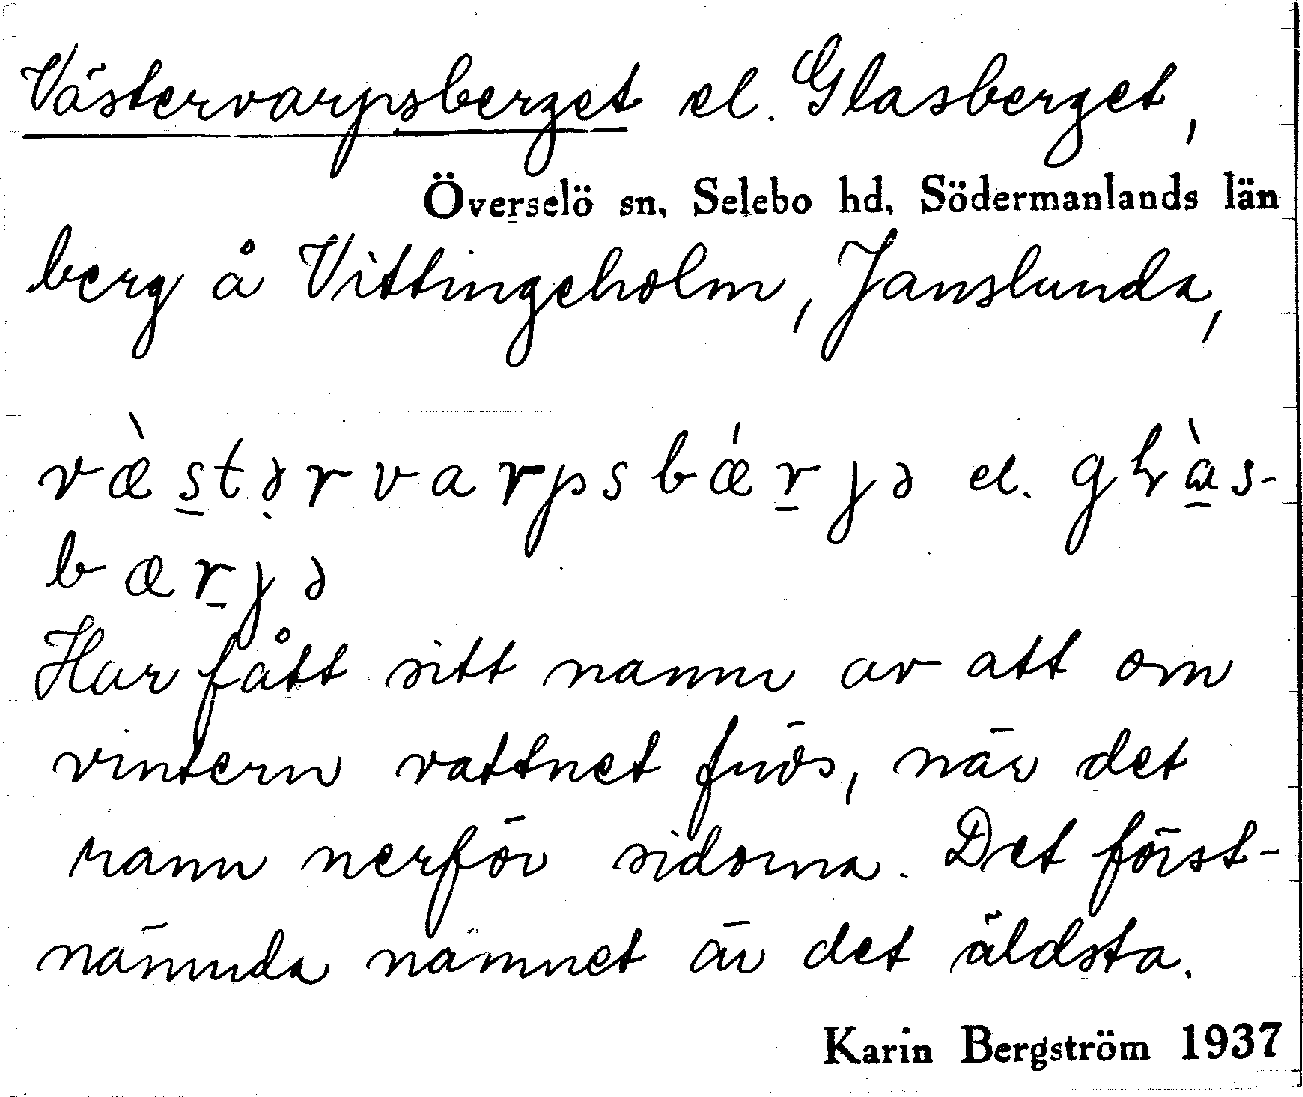 Västervarpsberget el. Glasberget,
Överselö sn, Selebo hd, Södermanlands län
berg å Vittingeholm, Janslunda,
væ̀s̠tə̣rvarpsbǽr̠jə el. glὰ̠s-
bær̠jə
Har fått sitt namn av att om
vintern vattnet frös, när det
rann nerför sidorna. Det först-
nämnda namnet är det äldsta.
Karin Bergström 1937